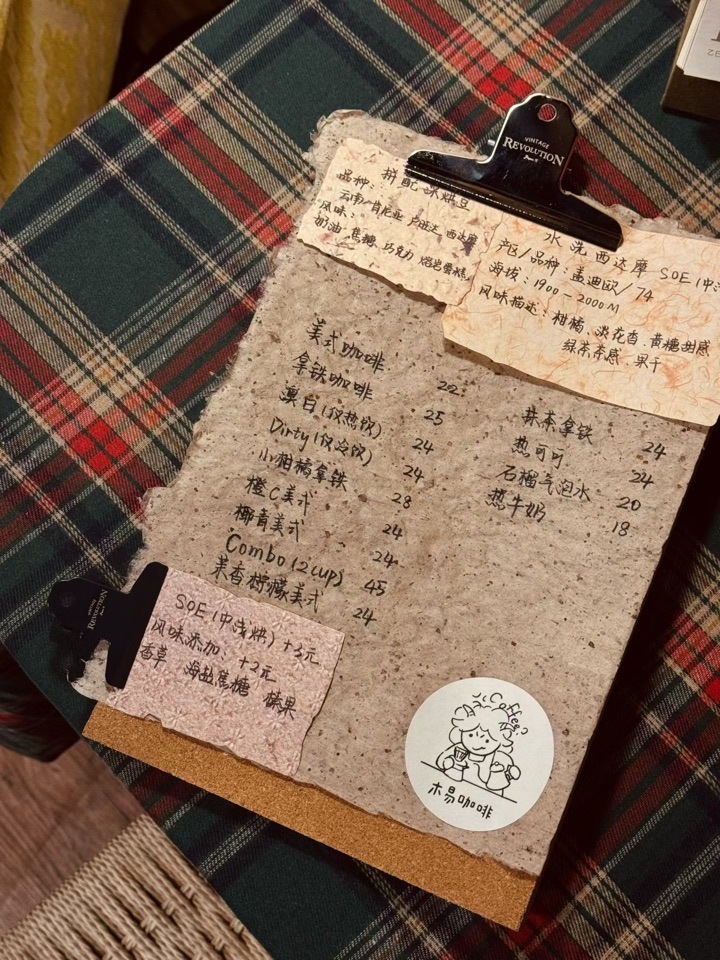 VINTAGE
REVOLUTION
品种：拼配深烘豆
云南 肯尼亚 卢旺达 西达摩
风味：
奶油 焦糖 巧克力 熔岩蛋糕
水洗西达摩 SOE（中浅
产区/品种：盖迪欧/74
海拔：1900-2000M
风味描述：柑橘、淡花香、黄糖甜感
绿茶茶感、果干
美式咖啡 22
拿铁咖啡 25
澳白（仅热饮） 24
Dirty（仅冷饮） 24
小柑橘拿铁 28
橙C美式 24
椰青美式 24
Combo（2cup） 45
茉香柠檬美式 24
抹茶拿铁 24
热可可 24
石榴气泡水 20
热牛奶 18
REVOLUTION
SOE（中浅烘）+3元
风味添加：+2元
香草 海盐焦糖 榛果
Coffee?
木易咖啡